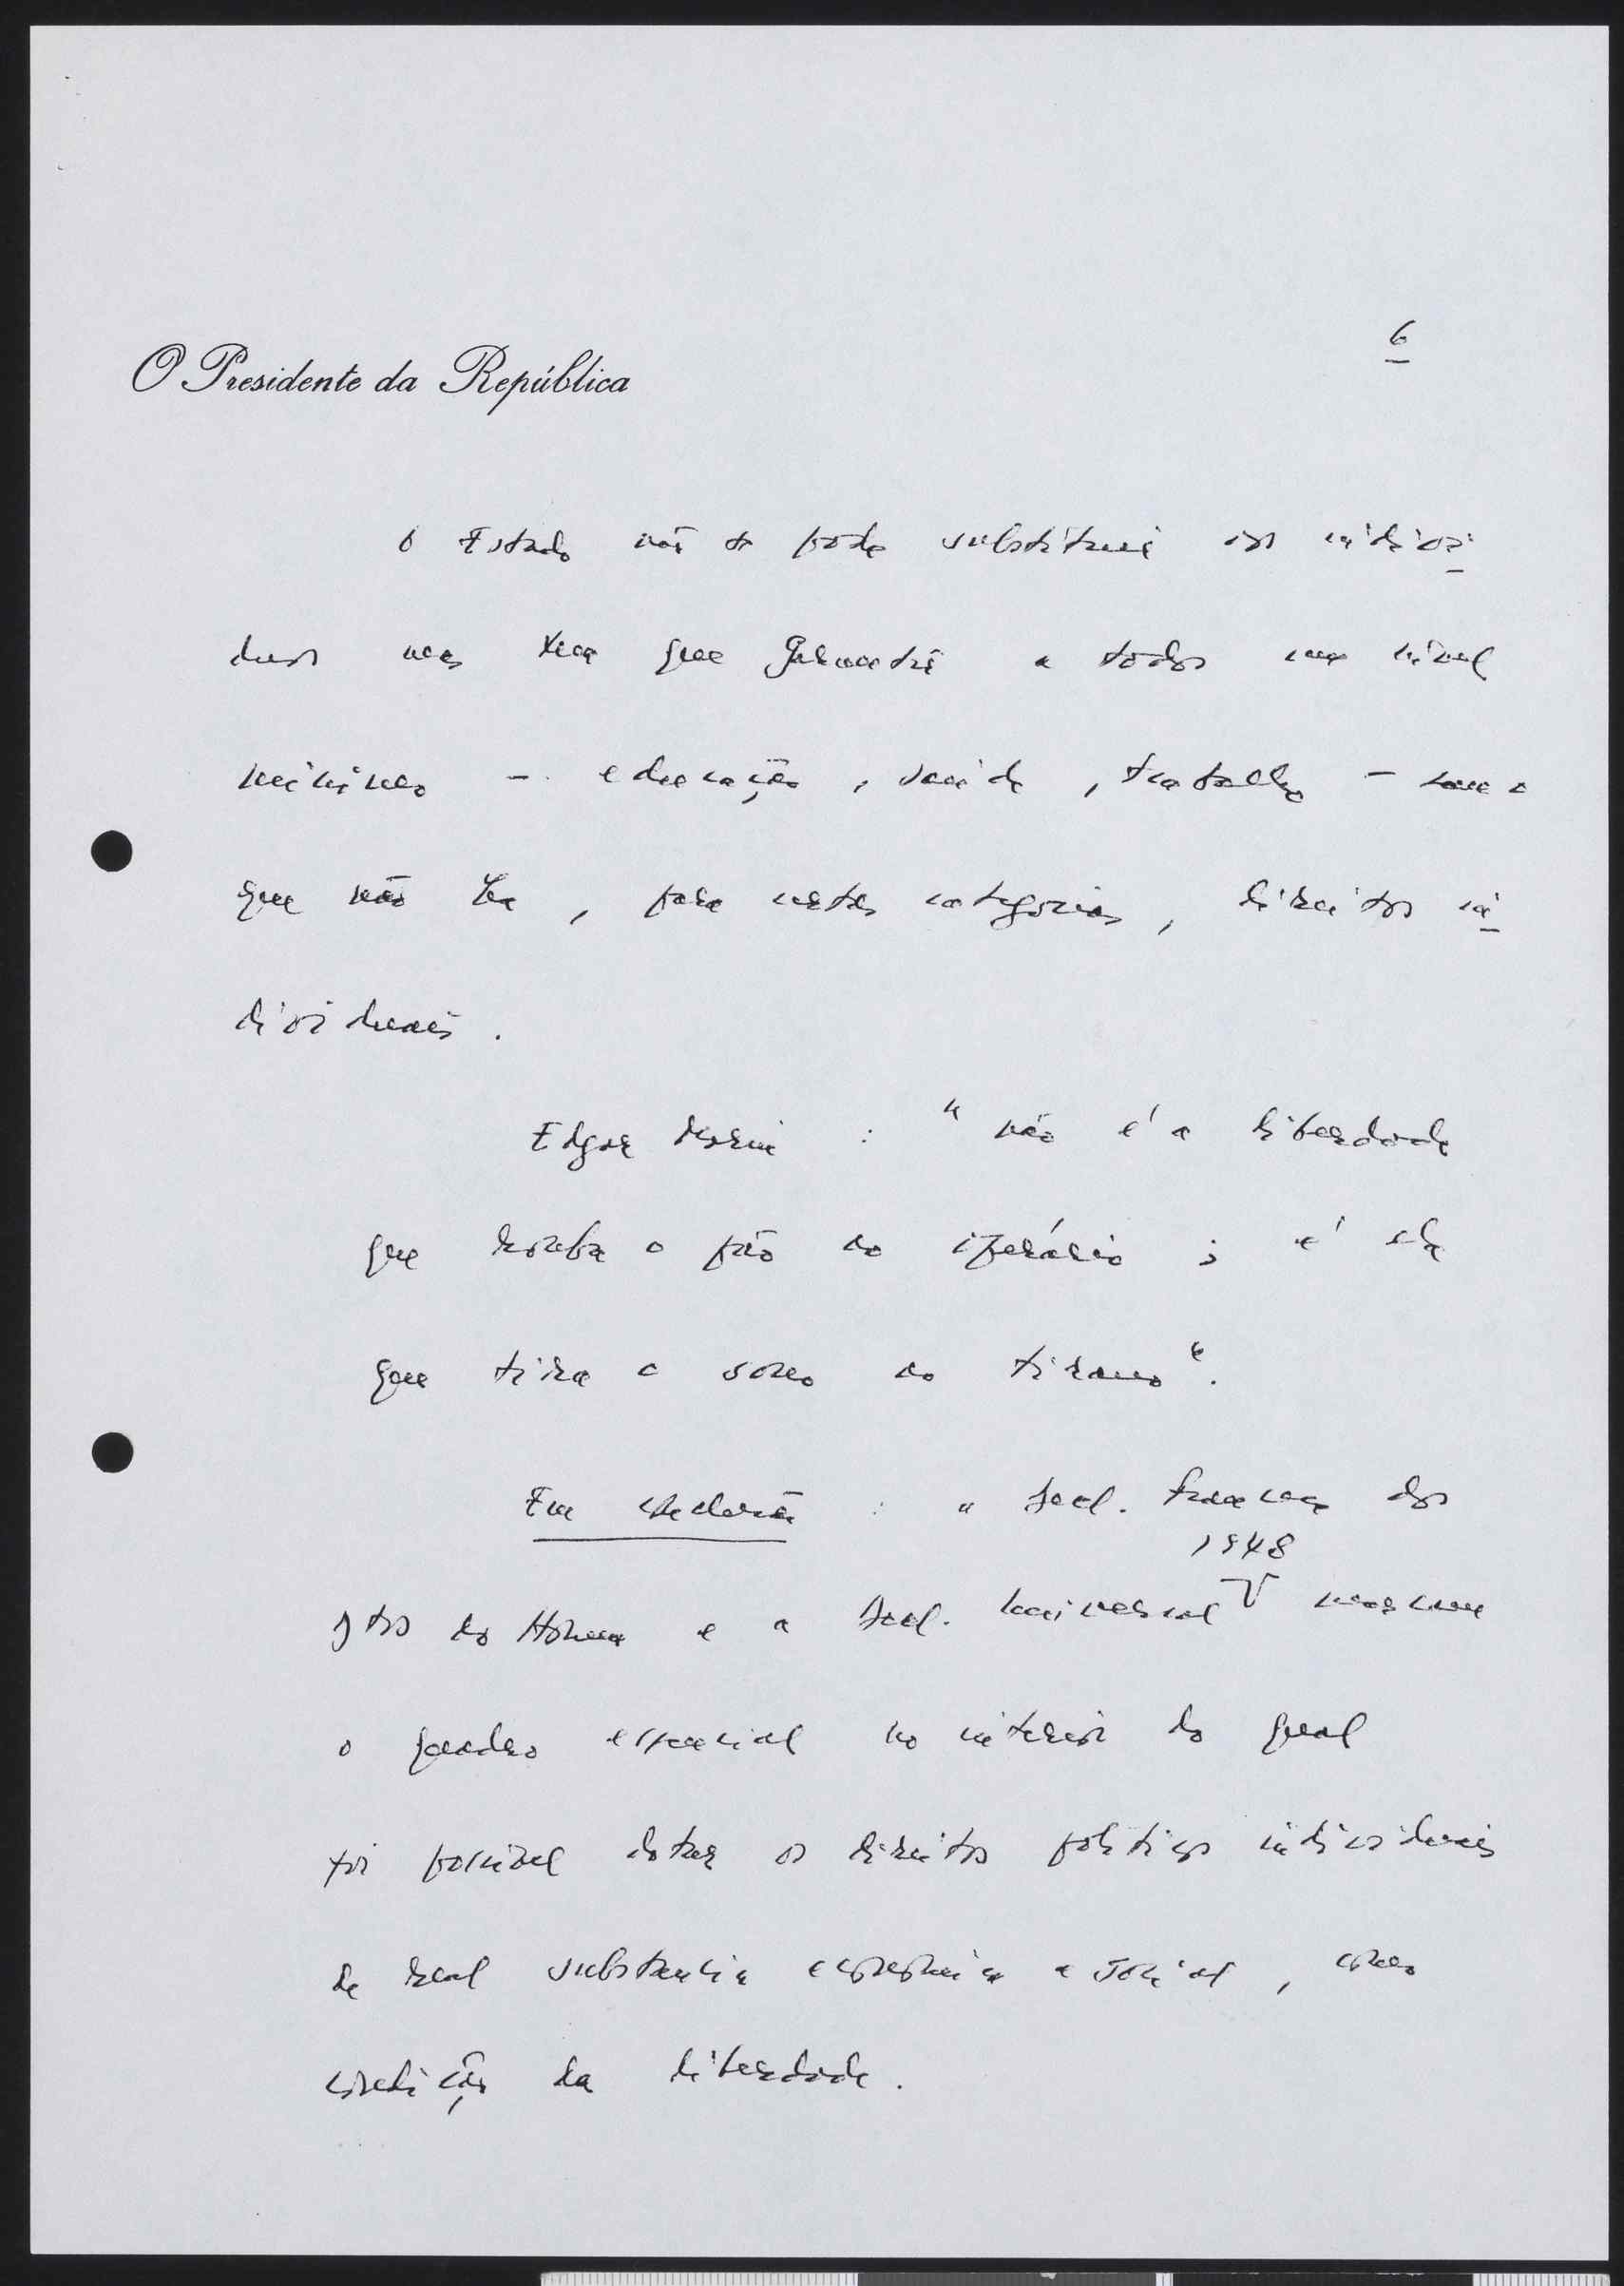 6
O Presidente da República
O Estado não se pode substituir aos indiví
duos mas tem que garantir a todos um nível
mínimo - educação, saúde, trabalho - sem o
que não há, para certas categorias, direitos in
dividuais.
Edgar Morin : "não é a liberdade
que rouba o pão ao operário ; é ela
que tira o sono ao tirano".
Em conclusão : a decl. francesa dos
dtos do Homem e a decl. universal
1948
marcam
o quadro essencial no interior do qual
foi possível dotar os direitos políticos individuais
de real substancia económica e social, como
condição da liberdade.